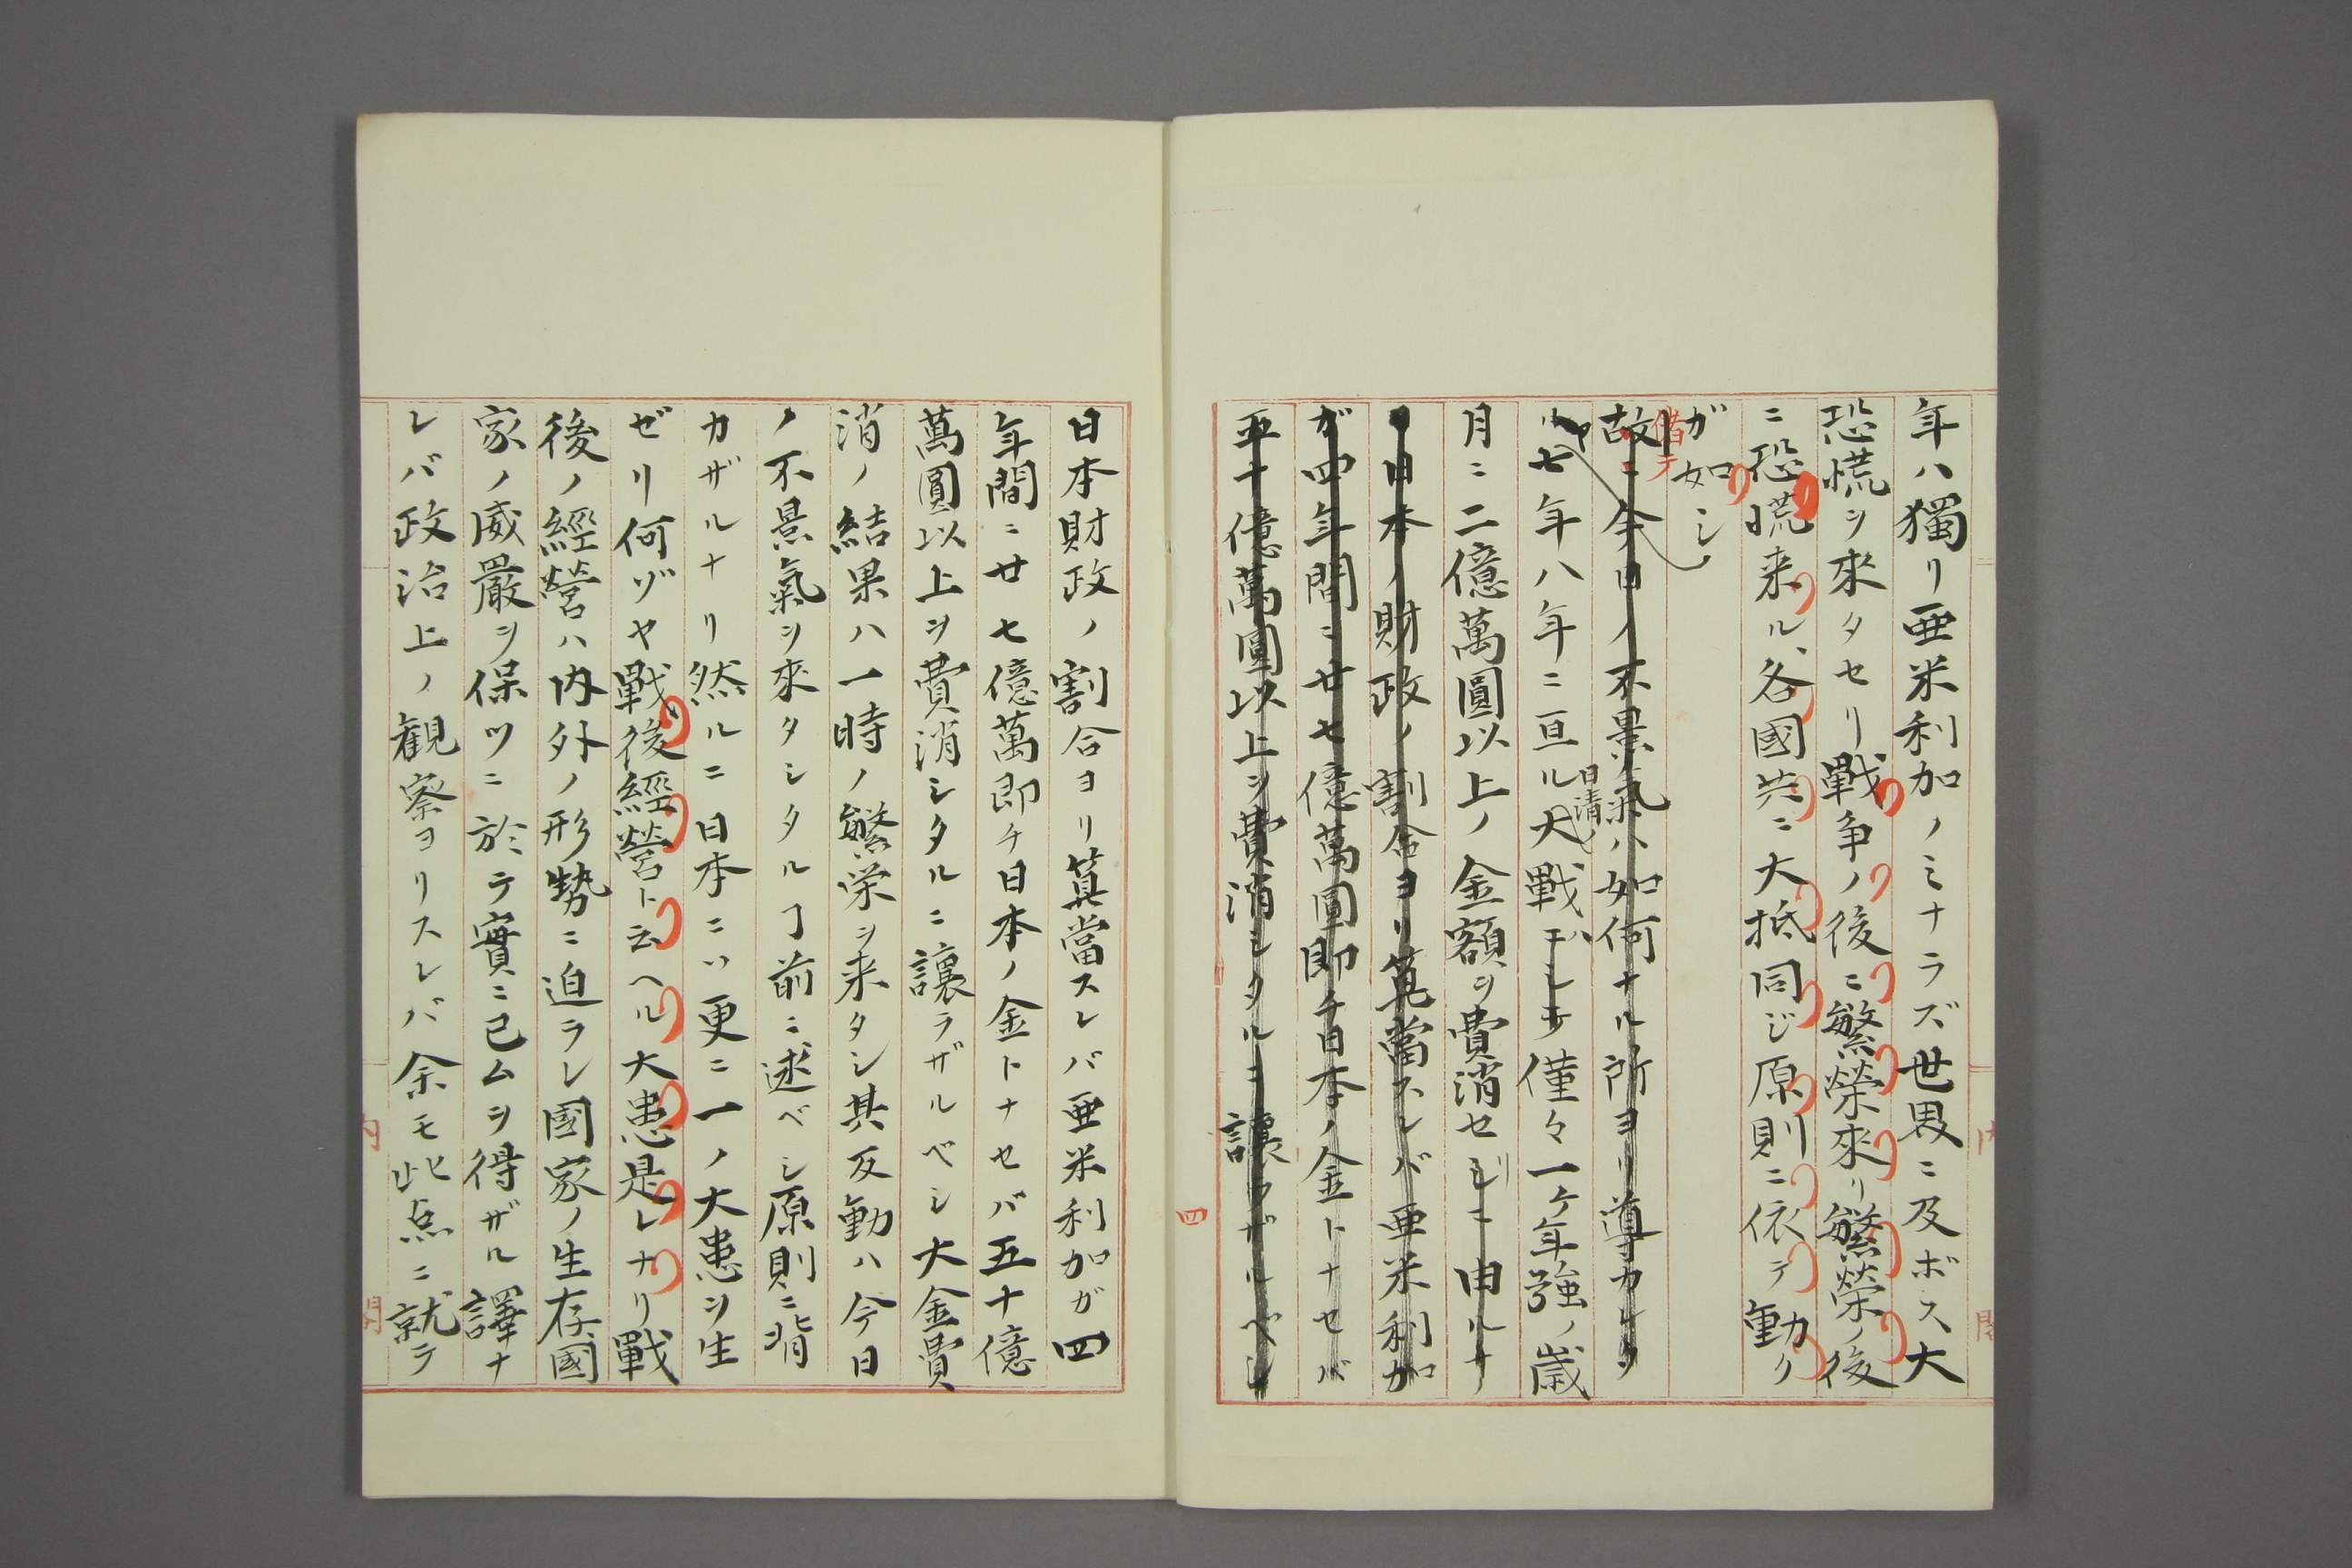 年ハ獨リ亜米利加ノミナラズ世界ニ及ボス大
恐慌ヲ來タセリ戰争ノ後ニ繁榮來リ繁榮ノ後
ニ恐慌来ル、各國共ニ大抵同ジ原則ニ依テ動ク
ガ如シ
偖テ
故ニ今日ノ不景氣ハ如何ナル所ヨリ導カレタ
ル七年八年ニ亘ル大戰
日清ノ
僅々一ケ年強ノ歳
月ニ二億萬圓以上ノ金額ヲ費消セシニ由ルナ
日本ノ財政ノ割合ヨリ算當スレバ亜米利加
ガ四年間ニ廿七億萬圓即チ日本ノ金トナセバ
五十億萬圓以上ヲ費消シタルニ讓ラザルベシ
四
日本財政ノ割合ヨリ算當スレバ亜米利加ガ四
年間ニ廿七億萬即チ日本ノ金トナセバ五十億
萬圓以上ヲ費消シタルニ讓ラザルベシ大金費
消ノ結果ハ一時ノ繁栄ヲ来タシ其反動ハ今日
ノ不景氣ヲ來タシタルヿ前ニ述ベシ原則ニ背
カザルナリ然ルニ日本ニハ更ニ一ノ大患ヲ生
ゼリ何ゾヤ戰後經營ト云ヘル大患是レナリ戰
後ノ經營ハ内外ノ形勢ニ迫ラレ國家ノ生存國
家ノ威嚴ヲ保ツニ於テ實ニ已ムヲ得ザル譯ナ
レバ政治上ノ観察ヨリスレバ余モ此点ニ就テ
内閣